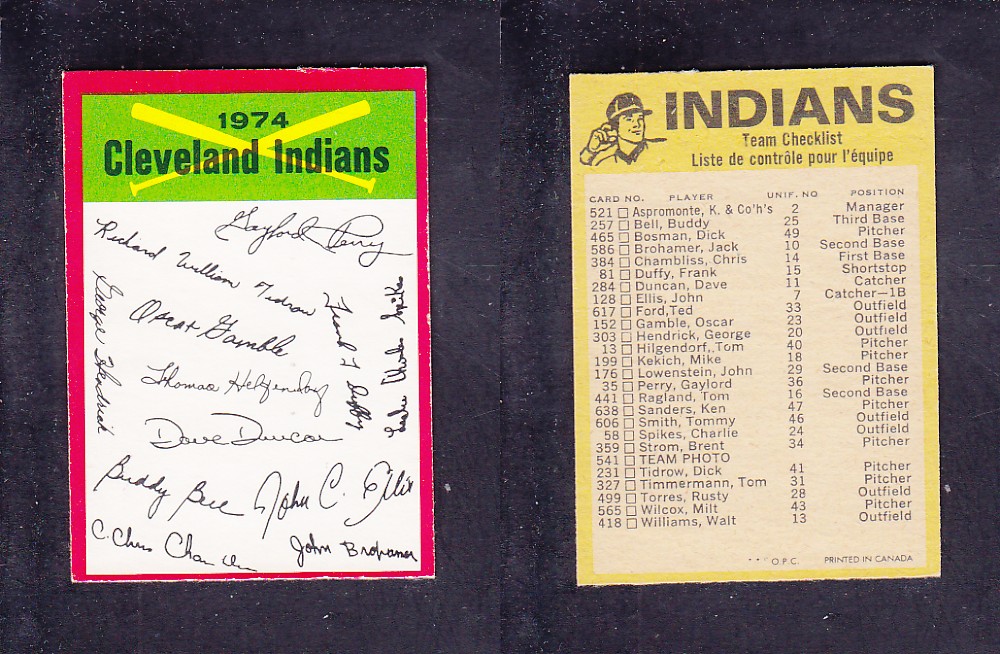 1974
Cleveland Indians
Gaylord Perry
Richard William Tidrow
George Hendrick
Oscar Gamble
Frank T Duffy
Leslie Charles Spikes
Thomas Hilgendorf
Dave Duncan
Buddy Bell
John C. Ellis
C. Chris Chambliss
John Brohamer
INDIANS
Team Checklist
Liste de contrôle pour l'équipe
CARD NO. PLAYER UNIF. NO POSITION
521 Aspromonte, K. & Co'h's 2 Manager
257 Bell, Buddy 25 Third Base
465 Bosman, Dick 49 Pitcher
586 Brohamer, Jack 10 Second Base
384 Chambliss, Chris 14 First Base
81 Duffy, Frank 15 Shortstop
284 Duncan, Dave 11 Catcher
128 Ellis, John 7 Catcher—1B
617 Ford,Ted 33 Outfield
152 Gamble, Oscar 23 Outfield
303 Hendrick, George 20 Outfield
13 Hilgendorf, Tom 40 Pitcher
199 Kekich, Mike 18 Pitcher
176 Lowenstein, John 29 Second Base
35 Perry, Gaylord 36 Pitcher
441 Ragland, Tom 16 Second Base
638 Sanders, Ken 47 Pitcher
606 Smith, Tommy 46 Outfield
58 Spikes, Charlie 24 Outfield
359 Strom, Brent 34 Pitcher
541 TEAM PHOTO
231 Tidrow, Dick 41 Pitcher
327 Timmermann, Tom 31 Pitcher
499 Torres, Rusty 28 Outfield
565 Wilcox, Milt 43 Pitcher
418 Williams, Walt 13 Outfield
O.P.C. PRINTED IN CANADA